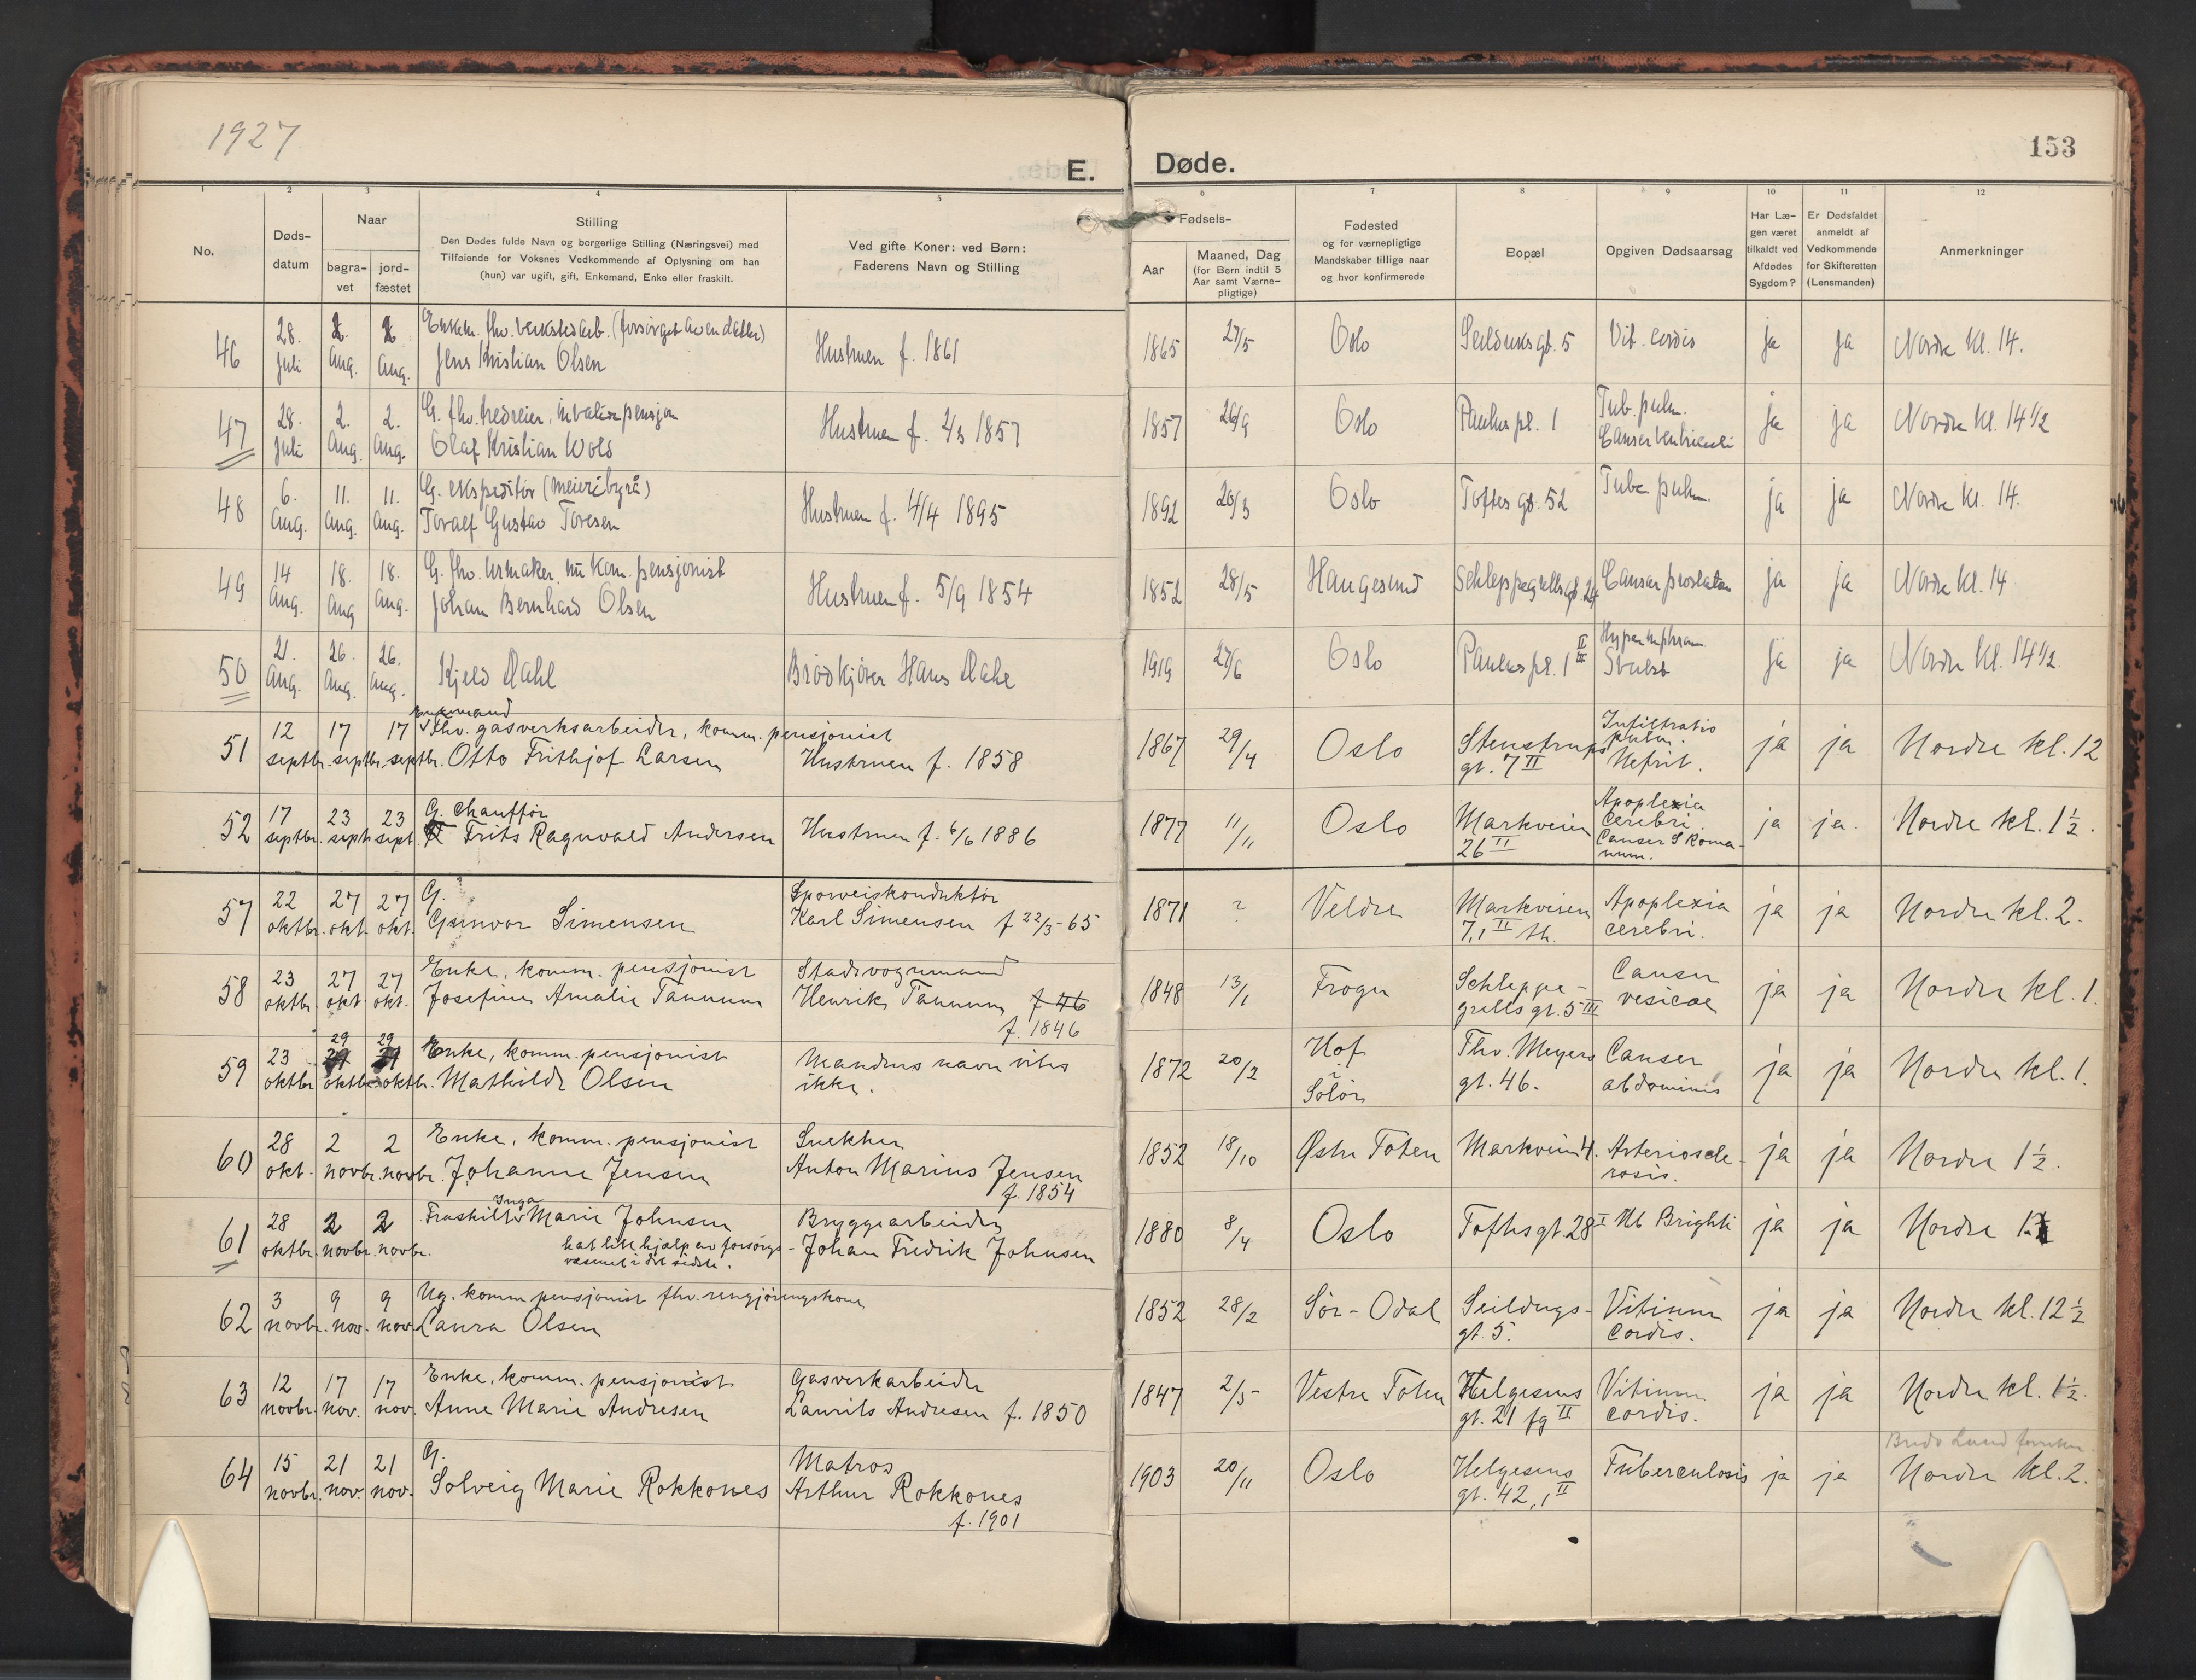 1927
E. Døde.
153
1 2 3 4 5 6 7 8 9 10 11 12
No.
Døds-
datum
Naar
begra-
vet
jord-
fæstet
Stilling
Den Dødes fulde Navn og borgerlige Stilling (Næringsvei) med
Tilføiende for Voksnes Vedkommende af Oplysning om han
(hun) var ugift, gift, Enkemand, Enke eller fraskilt.
Ved gifte Koner: ved Børn:
Faderens Navn og Stilling
Fødsels-
Aar
Maaned, Dag
(for Børn indtil 5
Aar samt Værne-
pligtige)
Fødested
og for værnepligtige
Mandskaber tillige naar
og hvor konfirmerede
Bopæl
Opgiven Dødsaarsag
Har Læ-
gen været
tilkaldt ved
Afdødes
Sygdom?
Er Dødsfaldet
anmeldt af
Vedkommende
for Skifteretten
(Lensmanden)
Anmerkninger
46 28. Juli 2. Aug. 2. Aug.
Enkem. fhv. verkstedarb. (forsørget av en datter)
Jens Kristian Olsen
Hustruen f. 1861
1865 27/5 Oslo Seilduksgt. 5 Vit. cordis ja ja Nordre kl. 14.
47 28. Juli 2. Aug. 2. Aug.
G. fhv. , invalidepensjon
Olaf Kristian Wold
Hustruen f. 2/3 1857
1857 26/9 Oslo Paulus pl. 1 Tub. pulm.
Canser ventriculi
ja ja Nordre kl. 14 1/2
48 6. Aug. 11. Aug. 11. Aug.
G. ekspeditør (meieribyrå)
Toralf Gustav Toresen
Hustruen f. 4/4 1895
1892 20/3 Oslo Toftes gt. 52 Tube pulm. ja ja Nordre kl. 14.
49 14 Aug. 18. Aug 18. Aug.
G. fhv. urmaker, nu kom. pensjonist
Johan Bernhard Olsen
Hustruen f. 5/9 1854
1852 28/5 Haugesund Schleppegrellsgt. 24 Canser prostatae ja ja Nordre kl. 14
50 21. Aug. 26. Aug. 26. Aug.
Kjeld Dahl
Brødkjører Hans Dahl
1919 27/6 Oslo Paulus pl. 1 Hypernephrom
ja ja Nordre kl. 14 1/2.
51 12 septbr. 17 septbr. 17 septbr.
Enkemand
fhv. gasverksarbeider, komm. pensjonist
Otto Frithjof Larsen
Hustruen f. 1858
1867 29/4 Oslo Stenstrups
gt. 7 II
Infiltratio
pulm.
Nefrit.
ja ja Nordre kl. 12
52 17 septbr. 23 sept. 23 sept.
G. Chauffør
Frits Ragnvald Andersen
Hustruen f. 6/6 1886
1877 11/11 Oslo Markveien
26 II
Apoplexia
cerebri
Canser S Roma-
num.
ja ja. Nordre kl. 1 1/2.
57 22 oktbr. 27 okt. 27 okt.
G.
Gunvor Simensen
Sporveiskonduktør
Karl Simensen f 22/3-65
1871 ? Veldre Markveien
7, 1 II th.
Apoplexia
cerebri.
ja ja Nordre kl. 2.
58 23 oktbr. 27 okt. 27 okt.
Enke, komm. pensjonist
Josefine Amalie Tannum
Stadsvognmand
Henrik Tannum f 46
f. 1846
1848 13/1 Frogn Schleppe-
grells gt. 5 III
Canser
vesicae
ja ja Nordre kl. 1.
59 23 oktbr 29 oktbr. 29 oktbr.
Enke, komm. pensjonist
Mathilde Olsen
Mandens navn vites
ikke.
1872 20/2 Hof
i
Solør
Thv. Meyers
gt. 46.
Canser
abdominis
ja ja Nordre kl. 1.
60 28 okt. 2 novbr. 2 novbr.
Enke, komm. pensjonist
Johanne Jensen
Snekker
Anton Marius Jensen
f. 1854
1852 18/10 Østre Toten Markveien 4. Arterioscle-
rosis.
ja ja Nordre 1 1/2.
61 28 oktbr. 2 novbr. 2 novbr.
Inga
Fraskilt Marie Johnsen
hat litt hjælp av forsørgs-
væsenet i det sidste.
Bryggearbeider
Johan Fredrik Johnsen
1880 8/4 Oslo Toftesgt. 28 I Mb Brighti ja ja Nordre 1
62 3 novbr. 9 nov. 9 nov.
Ug. komm pensjonist fhv. rengjøringskone
Laura Olsen
1852 28/2 Sør-Odal Seildugs-
gt. 5.
Vitium
Cordis.
ja ja Nordre kl. 12 1/2
63 12 novbr. 17 nov. 17 nov.
Enke, komm. pensjonist
Anne Marie Andresen
Gasverkarbeider
Laurits Andresen f. 1850
1847 2/5 Vestre Toten Helgesens
gt. 21 fg II
Vitium
cordis.
ja ja Nordre kl. 1 1/2.
64 15 novbr. 21 nov. 21 nov.
G.
Solveig Marie Rokkones
Matros
Arthur Rokkones
f. 1901
1903 20/11 Oslo Helgesens
gt. 42, 1 II
Tuberculosis ja ja
Nordre kl. 2.